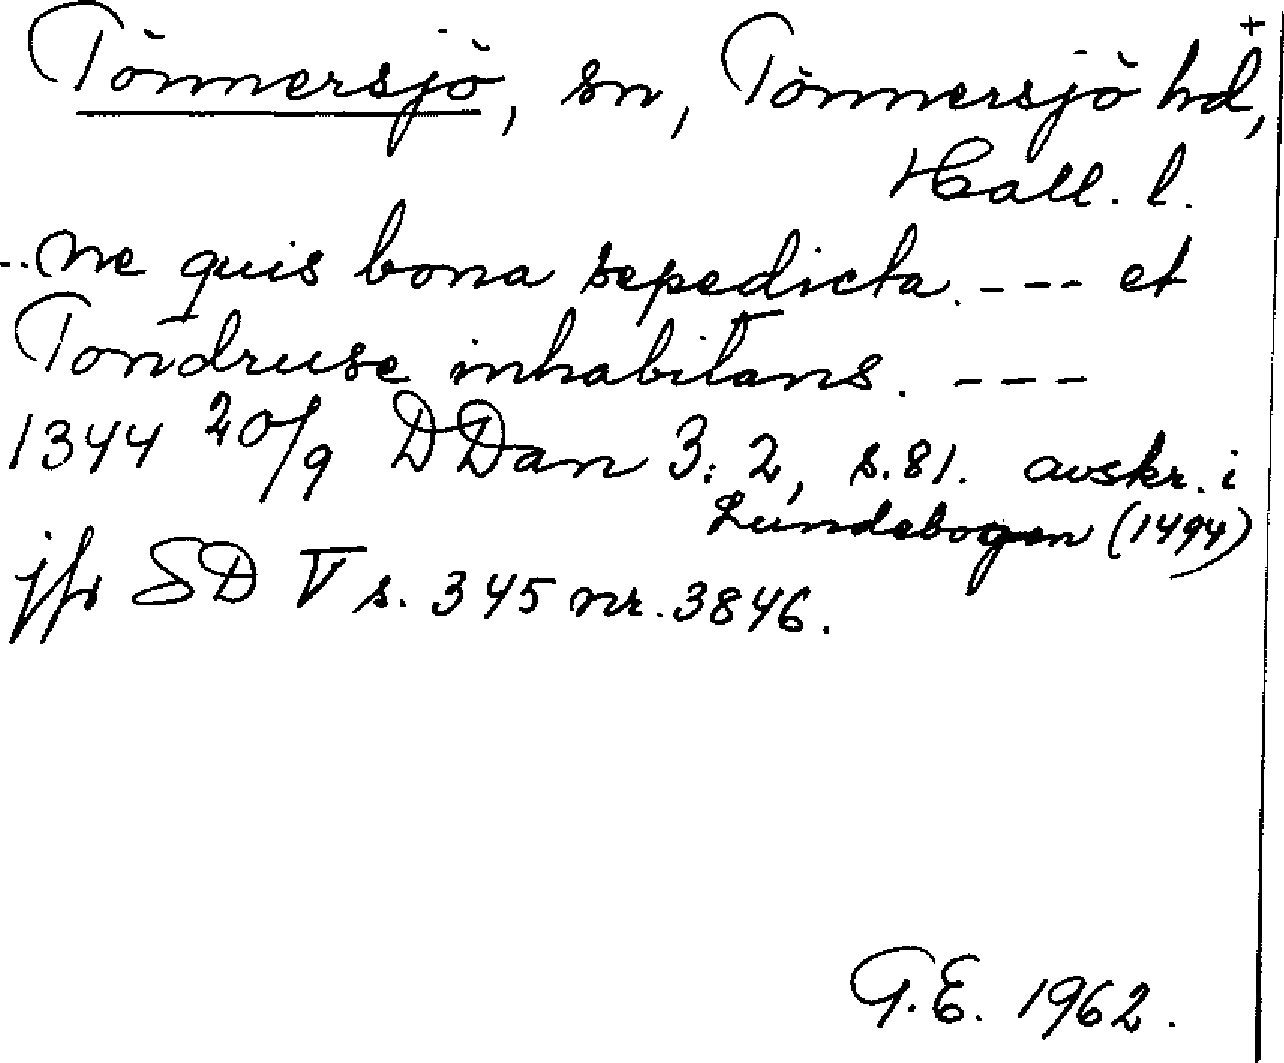 Tönnersjö, sn, Tönnersjö hd, +
Hall. l.
--ne quis bona sepedicta. --- et
Tondruse inhabitans. ---
1344 20/9 DDan 3:2, s.81. avskr. i
Lundebogen (1494)
jfr SD V s. 345 nr. 3846.
G.E. 1962.